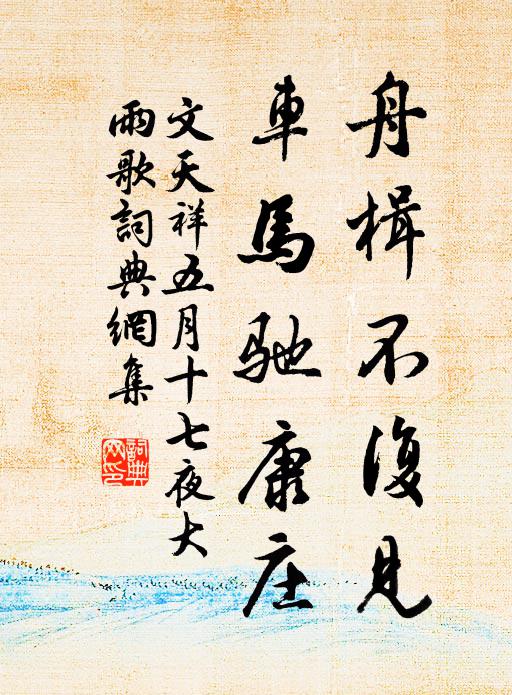 舟楫不復見
車馬馳康庄
文天祥五月十七夜大
雨歌詞典網集
詞典
网印